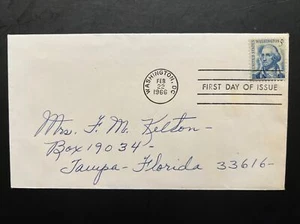 WASHINGTON, DC
FEB
22
1966
FIRST DAY OF ISSUE
Mrs. F. M. Kelson-
Box 19034-
Tampa-Florida 33616-